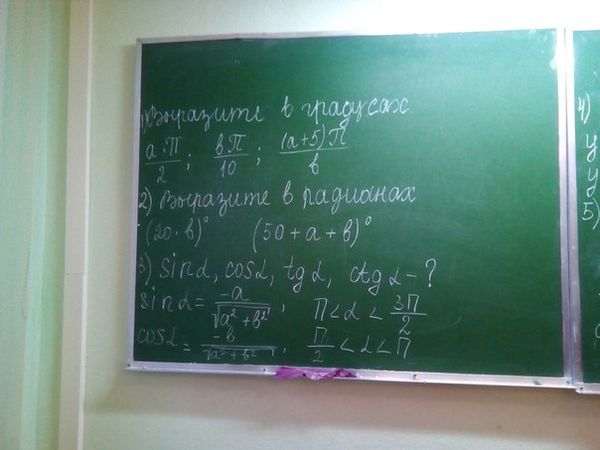 1) Выразите в градусах
a·П/2 ; вП/10 ; (a+5)П/в
2) Выразите в радианах
(20·в)° (50+a+в)°
3) sinα, cosα, tgα, ctgα - ?
sinα = -a/√a²+в² , П<α<3П/2
cosα = -в/√a²+в² , П/2<α<П
4)
у
у
5)